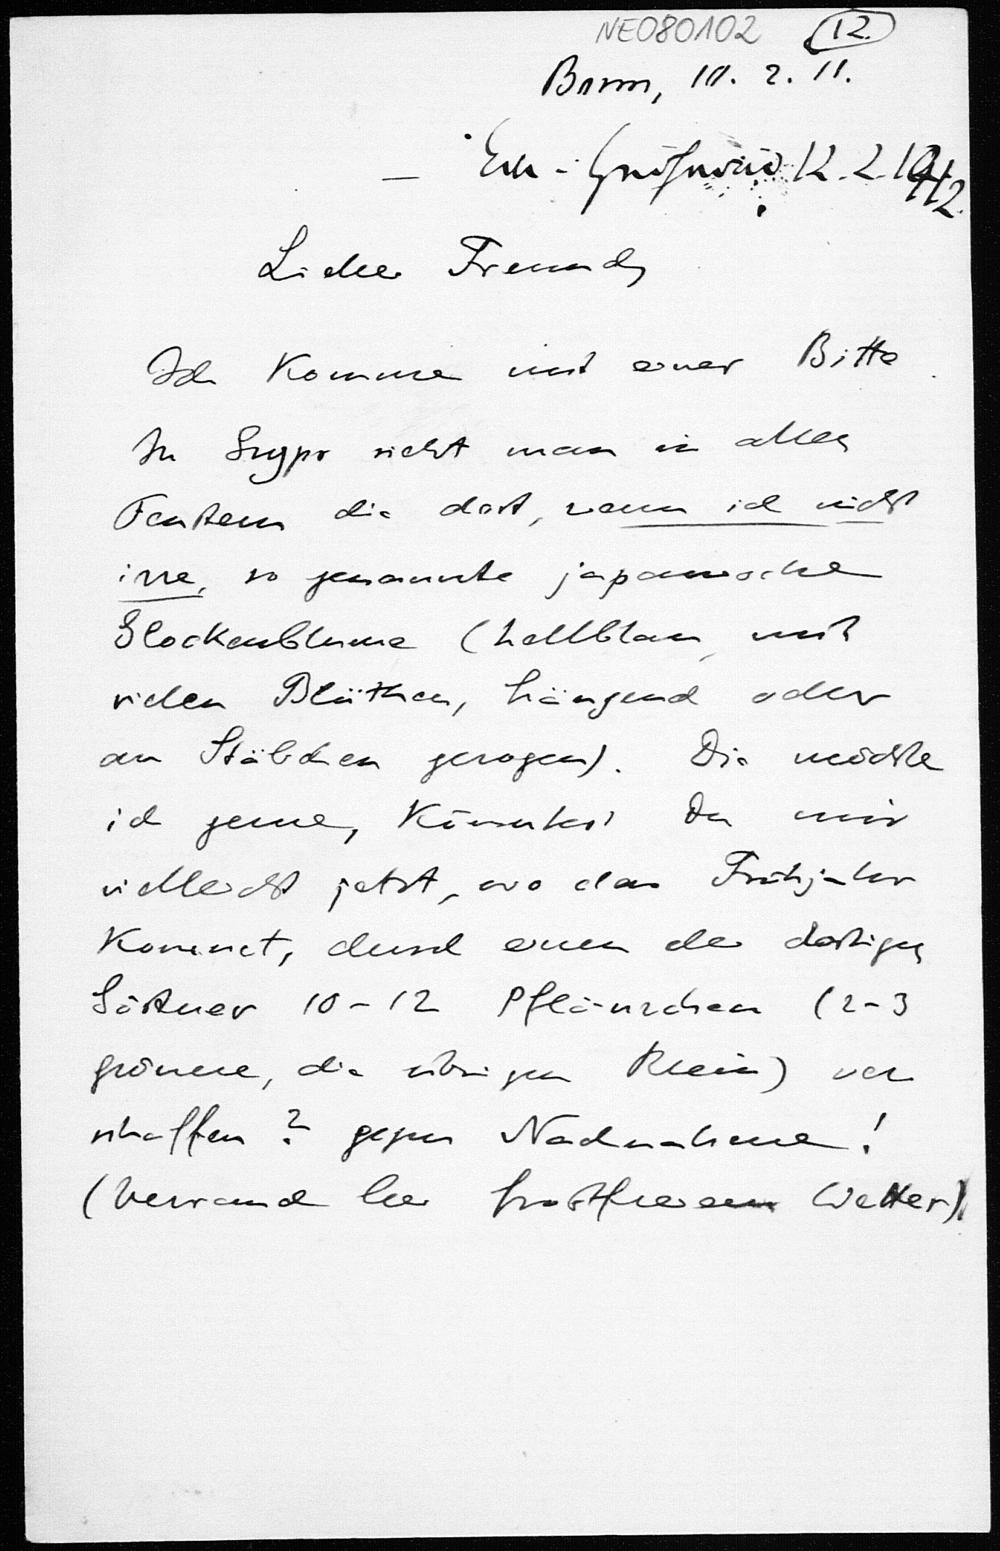 NE080102 12.
Bonn, 10. 2. 11.
12. 2.
Lieber Freund,
Ich komme mit einer Bitte
In sieht man in allen
Fenstern die dort, wenn ich nicht
irre, so genannte japanische
Glockenblume (hellblau, mit
vielen Blüthen, hängend oder
an Stäbchen gezogen). Die möchte
ich gerne, Könntest Du mir
vielleicht jetzt, wo das Frühjahr
kommt, durch einen der dortigen
Gärtner 10-12 Pflänzchen (2-3
grössere, die übrigen klein) ver
schaffen? gegen Nachnahme!
(Versand bei frostfreiem Wetter)